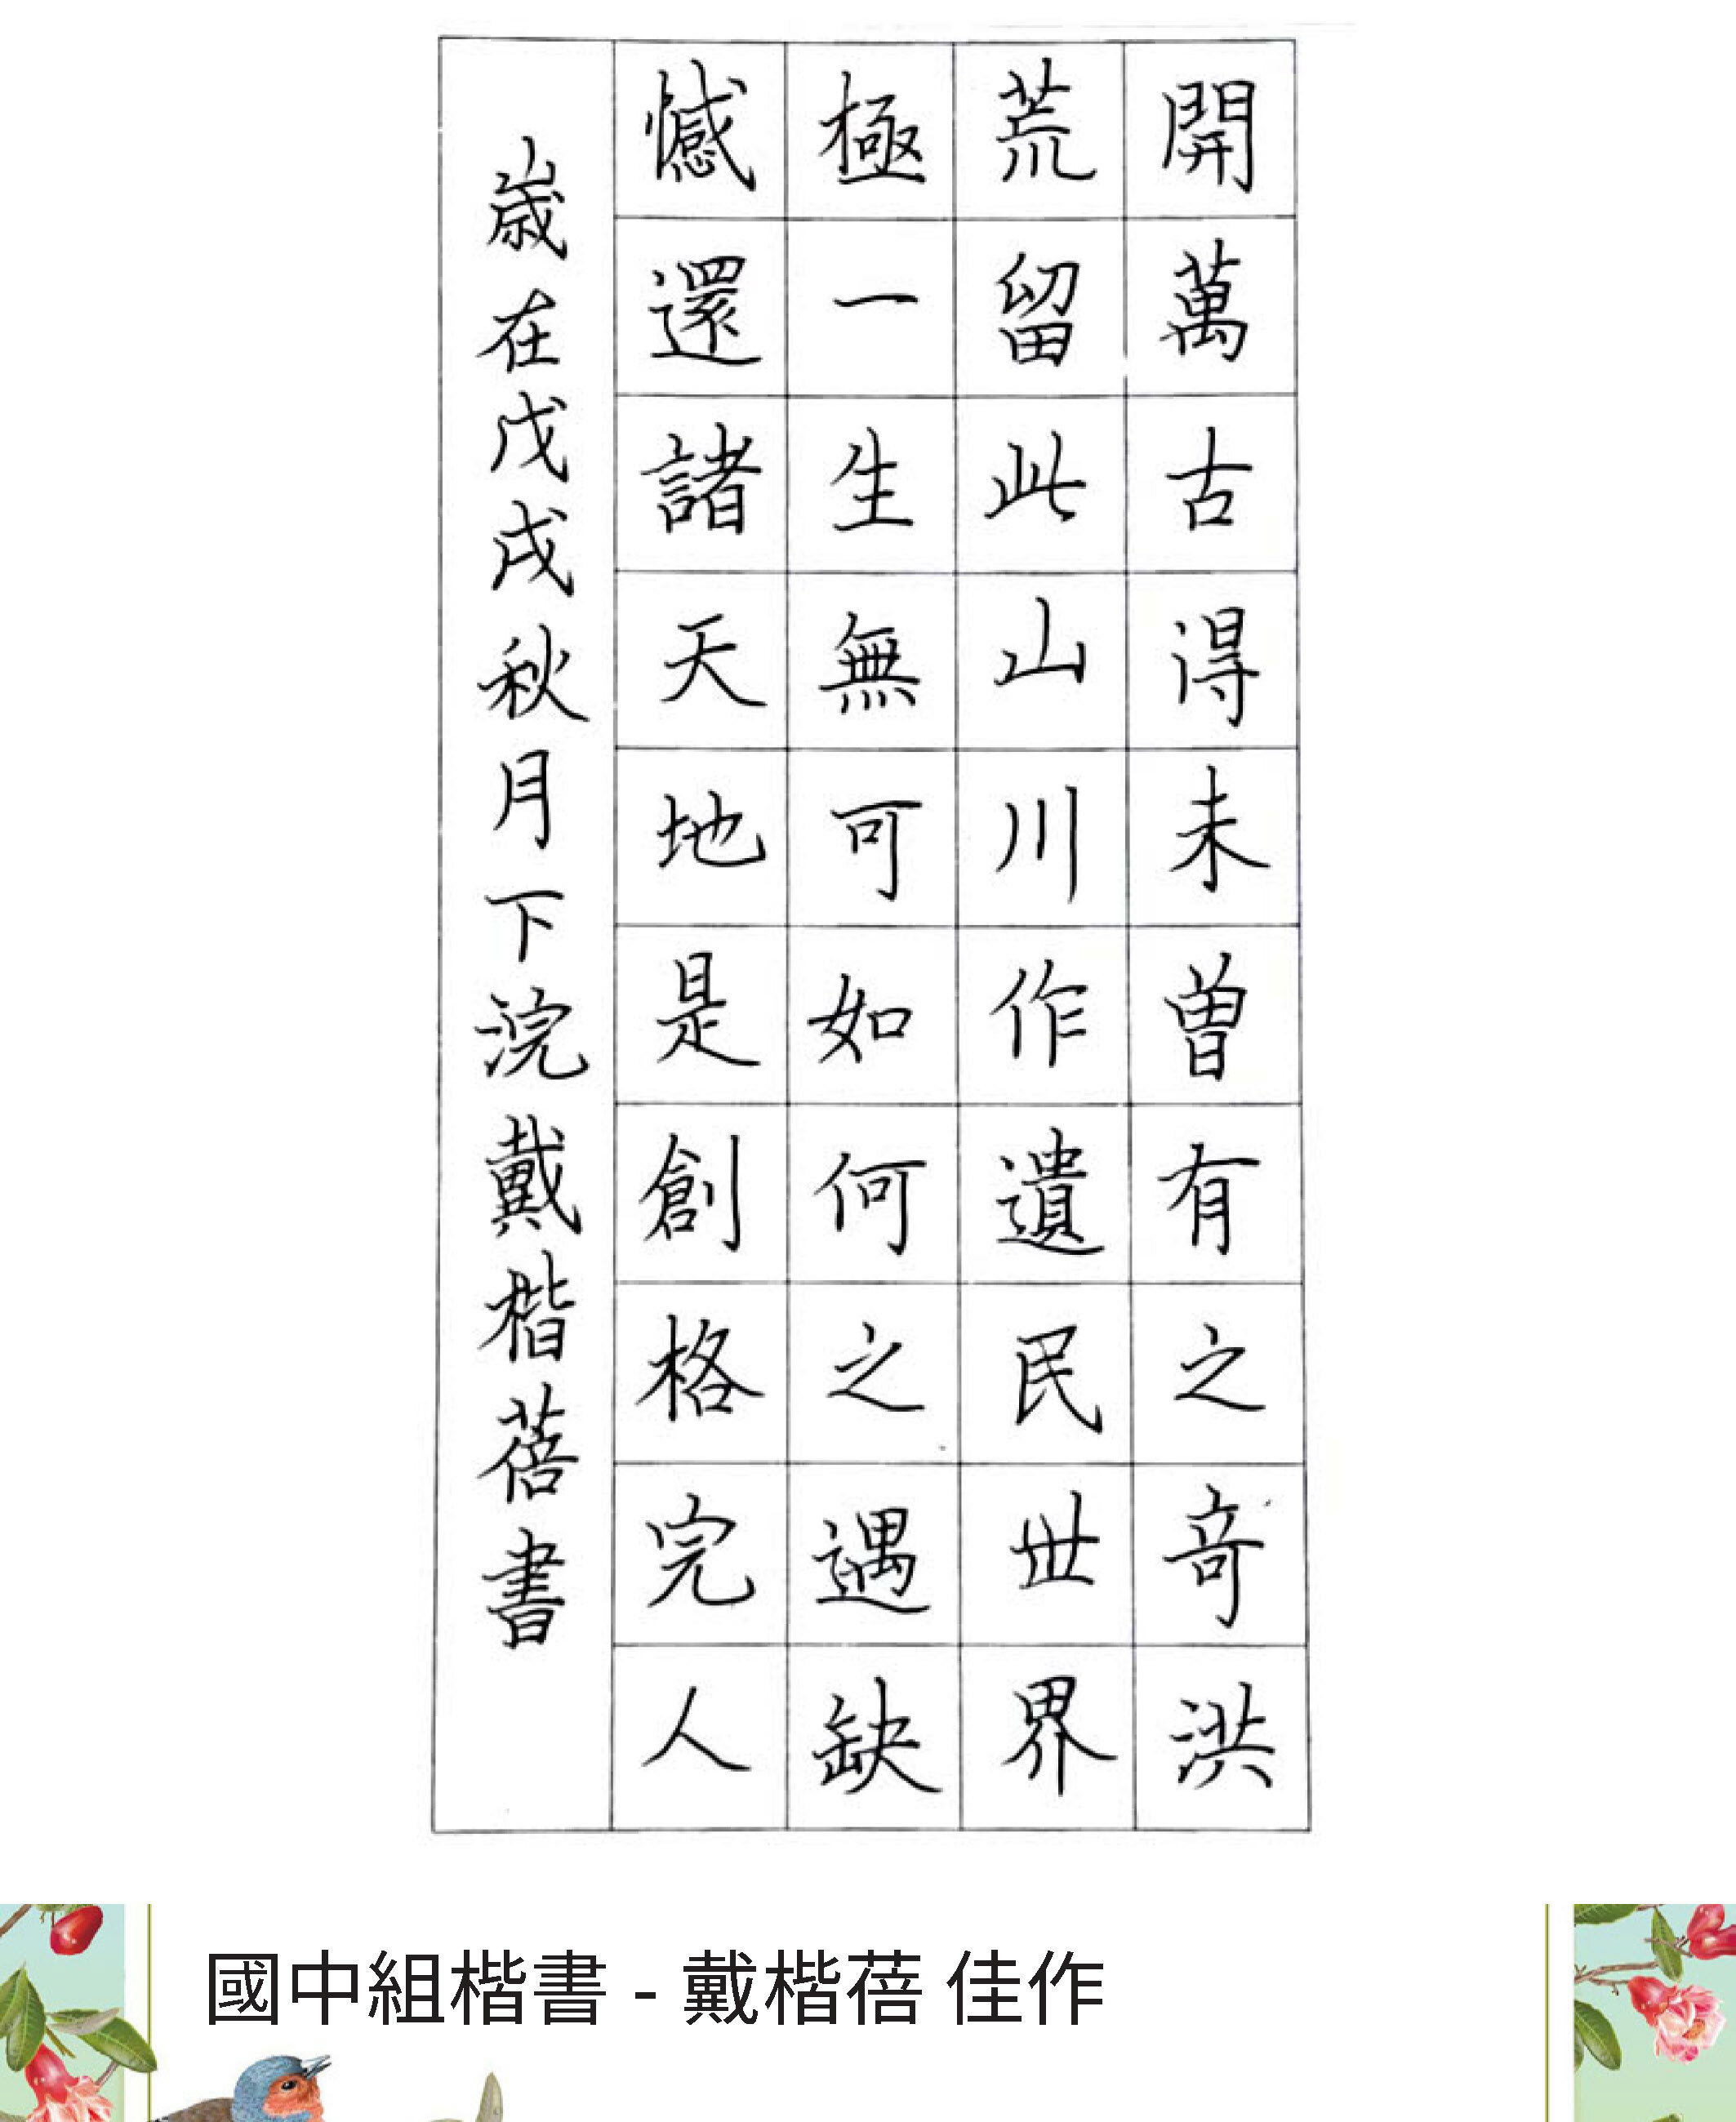 開萬古得未曾有之奇洪
荒留此山川作遺民世界
極一生無可如何之遇缺
憾還諸天地是創格完人
歲在戊戌秋月下浣戴楷蓓書
國中組楷書 - 戴楷蓓 佳作